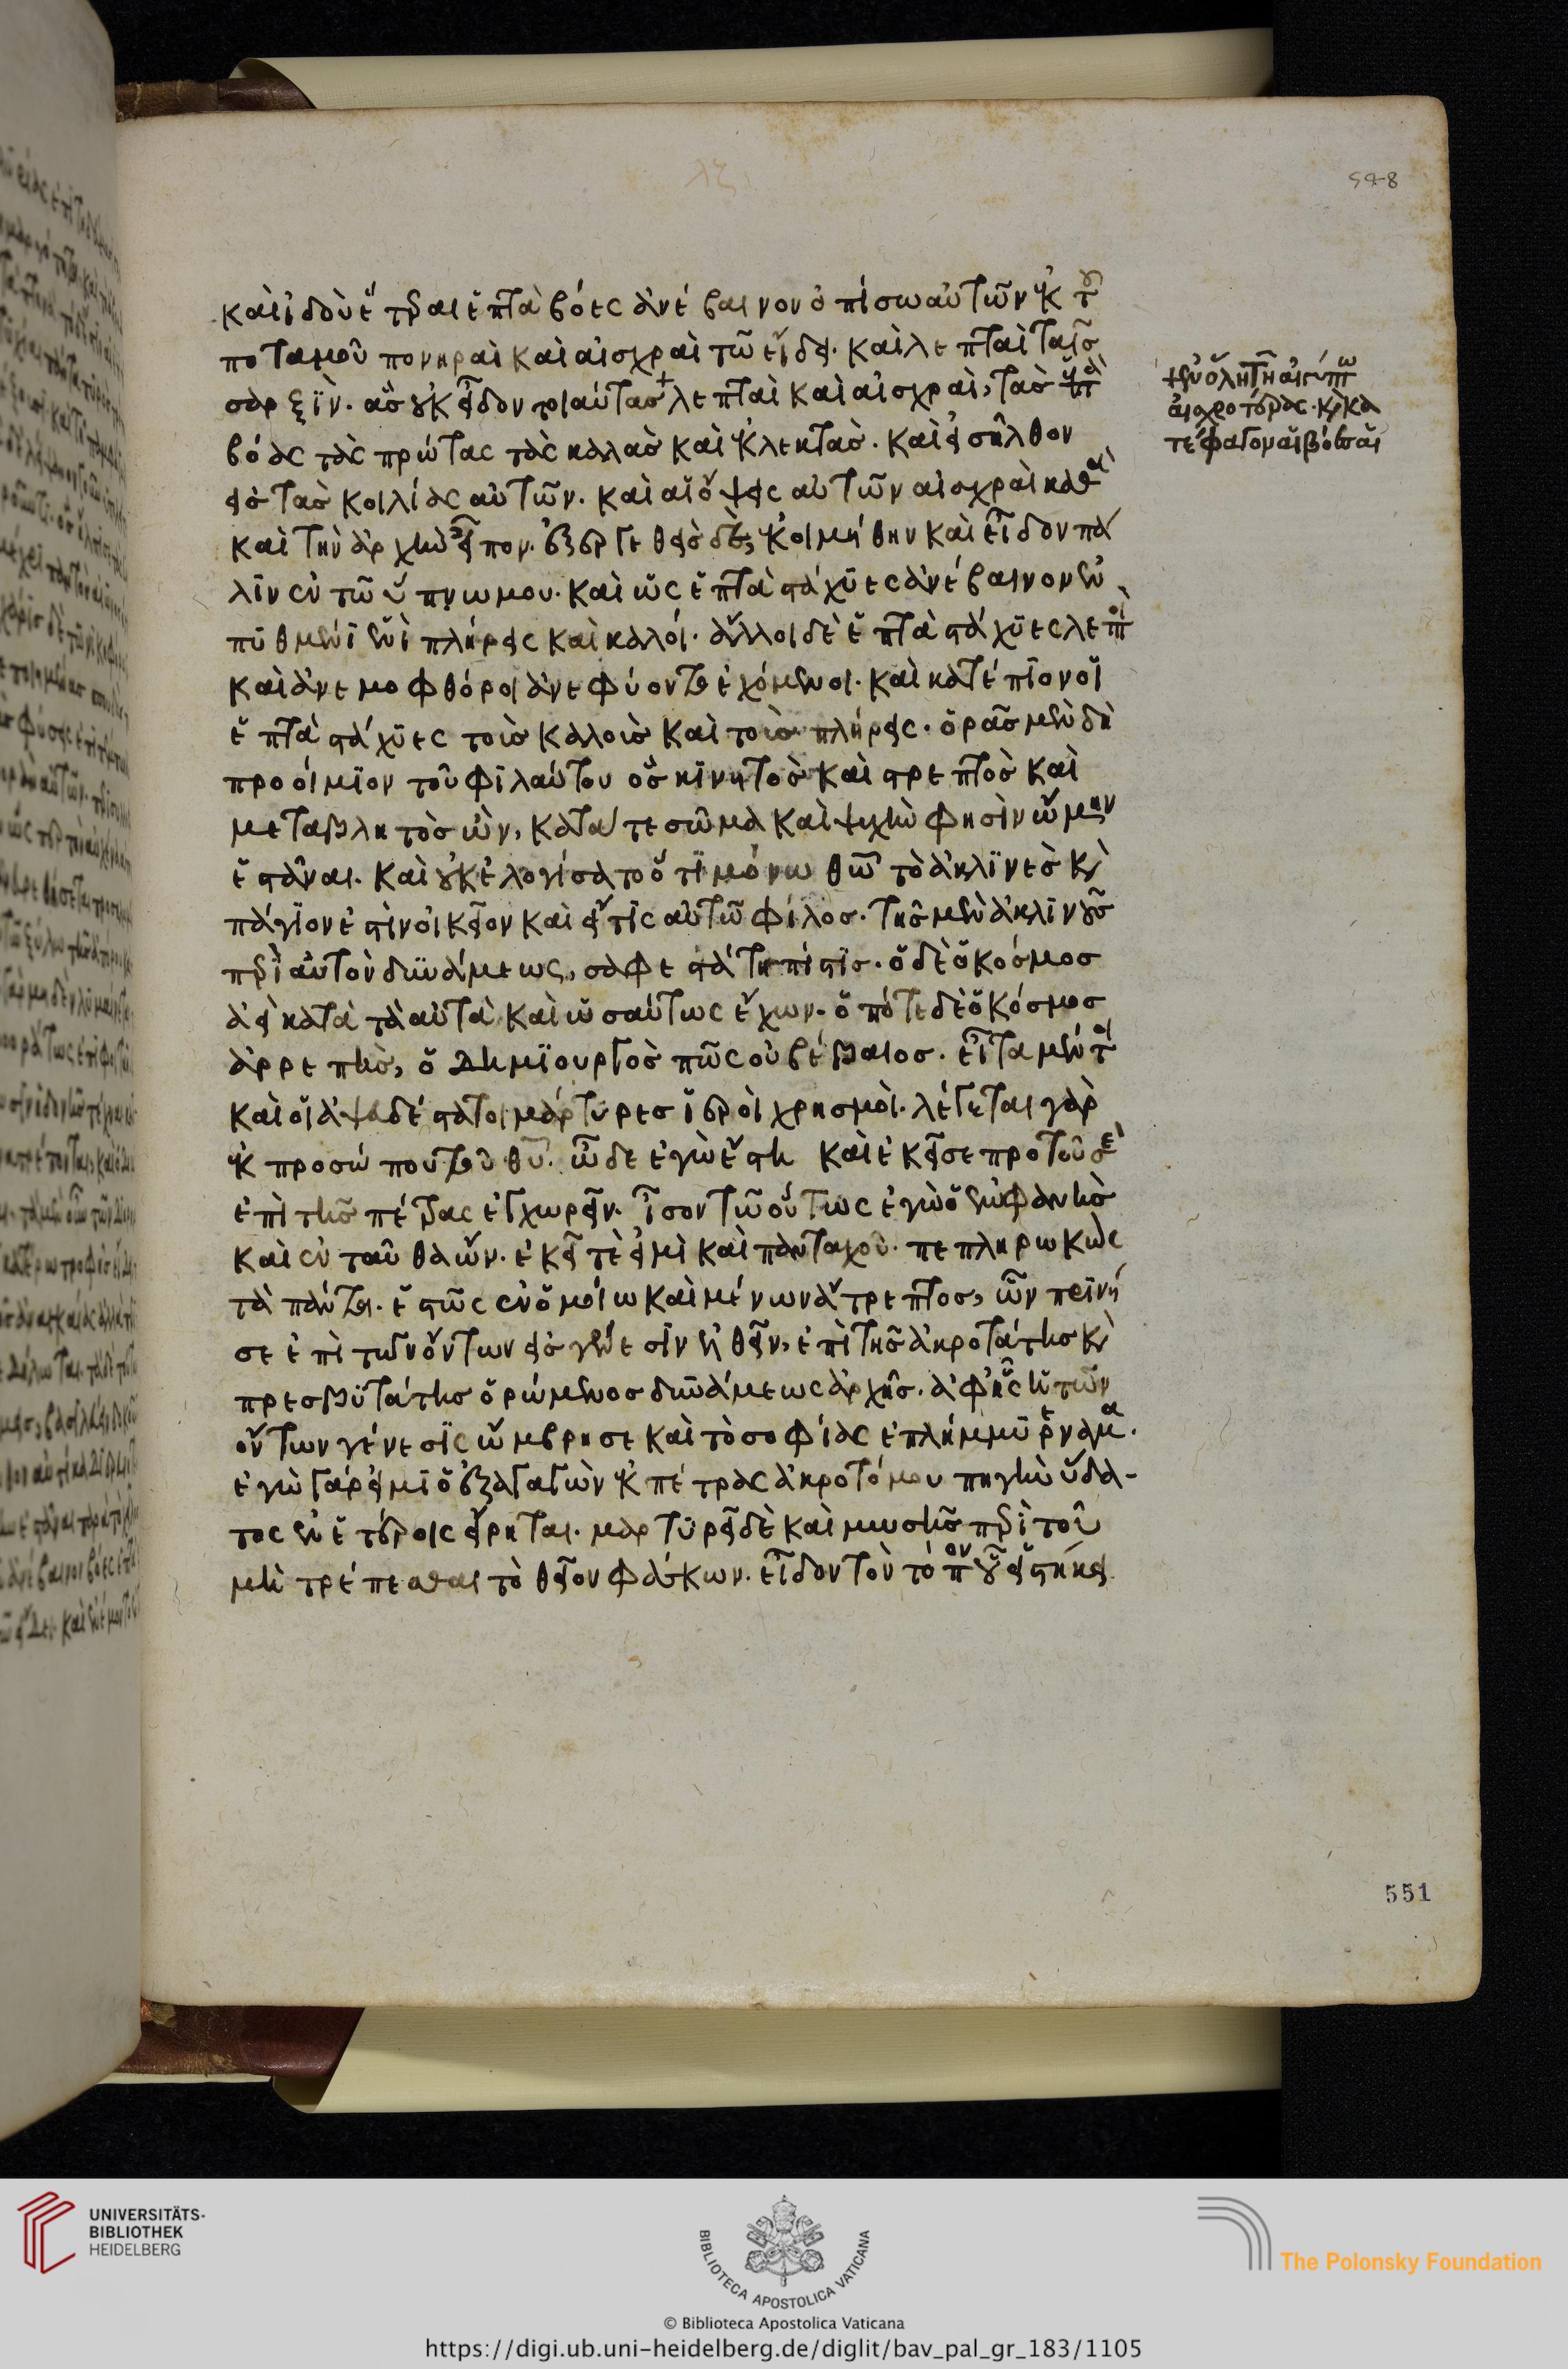 548
λζ
καὶ ἰδοὺ ἕτεραι ἑπτὰ βόες ἀνέβαινον ὀπίσω αὐτῶν ἐκ τοῦ
ποταμοῦ πονηραὶ καὶ αἰσχραὶ τῶ εἴδει. καὶ λεπταὶ ταῖς
σαρξὶν. ἃς οὐκ εἶδον τοιαύτας + λεπταὶ καὶ αἰσχραὶ, τὰς ἑπτὰ
βόας τὰς πρώτας τὰς καλὰς καὶ ἐκλεκτὰς. καὶ εἰσῆλθον
εἰς τὰς κοιλίας αὐτῶν. καὶ αἱ ὄψεις αὐτῶν αἰσχραὶ καθὰ
καὶ τὴν ἀρχὴν εἶπον. ἐξεργεθεὶς δὲ, ἐκοιμήθην καὶ εἶδον πά
λιν ἐν τῶ ὕπνω μου. καὶ ὡς ἑπτὰ στάχυες ἀνέβαινον ἐν
πυθμένι ἑνὶ πλήρεις καὶ καλοί. ἄλλοι δὲ ἑπτὰ στάχυες λεπτοὶ
καὶ ἀνεμοφθόροι ἀνεφύοντο ἐχόμενοι. καὶ κατέπιον οἱ
ἑπτὰ στάχυες τοὺς καλοὺς καὶ τοὺς πλήρεις. ὁρᾶς μὲν δὴ
προοίμιον τοῦ φιλαύτου ὃς κινητὸς καὶ στρεπτὸς καὶ
μεταβλητὸς ὢν, κατά τε σῶμα καὶ ψυχὴν φησὶν ὤμην
ἑστάναι. καὶ οὐκ ἐλογίσατο ὅτι μόνω θῶ τὸ ἀκλινὲς καὶ
πάγιόν ἐστιν οἰκεῖον καὶ εἴ τις αὐτῶ φίλος. τῆς μὲν ἀκλινοῦς
περὶ αὐτὸν δυνάμεως, σαφεστάτη πίστις. ὅδε ὁ κόσμος
ἀεὶ κατὰ τὰ αὐτὰ καὶ ὡσαύτως ἔχων. ὁπότε δὲ ὁ κόσμος
ἀρρεπὴς, ὁ δημιουργὸς πῶς οὐ βέβαιος. εἶτα μέντοι
καὶ οἱ ἀψευδέστατοι μάρτυρες ἱεροὶ χρησμοὶ. λέγεται γὰρ
ἐκ προσώπου τοῦ θυ. ὧδε ἐγὼ ἔστη καὶ ἐκεῖσε πρὸ τοῦ σὲ
ἐπὶ τῆς πέτρας ἐγχωρεῖν. ἴσον τῶ οὕτως ἐγὼ ὁ ἐμφανὴς
καὶ ἐνταῦθα ὢν. ἐκεῖ τὲ εἰμὶ καὶ πανταχοῦ. πεπληρωκὼς
τὰ πάντα. ἑστὼς ἐν ὁμοίω καὶ μένων ἄτρεπτος, ὢν πρινή
σε ἐπὶ τῶν ὄντων εἰς γένεσιν ἐλθεῖν, ἐπὶ τῆς ἀκροτάτης καὶ
πρεσβυτάτης ὁρώμενος δυνάμεως ἀρχῆς. ἀφ' ἧς ἡ τῶν
ὄντων γένεσις ὤμβρησε καὶ τὸ σοφίας ἐπλήμμυρε νᾶμα.
ἐγὼ γάρ εἰμι ὁ ἐξαγαγὼν ἐκ πέτρας ἀκροτόμου πηγὴν ὕδα-
τος ἐν ἑτέροις εἴρηται. μαρτυρεῖ δὲ καὶ μωσῆς περὶ τοῦ
μὴ τρέπεσθαι τὸ θεῖον φάσκων. εἶδον τὸν τόπον οὗ εἱστήκει
+ ἐν ὅλη τῆ αἰγύπτω
αἰσχροτέρας. καὶ κα
τέφαγον αἱ βόες αἱ
551
UNIVERSITÄTS-
BIBLIOTHEK
HEIDELBERG
BIBLIOTECA APOSTOLICA VATICANA
The Polonsky Foundation
© Biblioteca Apostolica Vaticana
https://digi.ub.uni-heidelberg.de/diglit/bav_pal_gr_183/1105